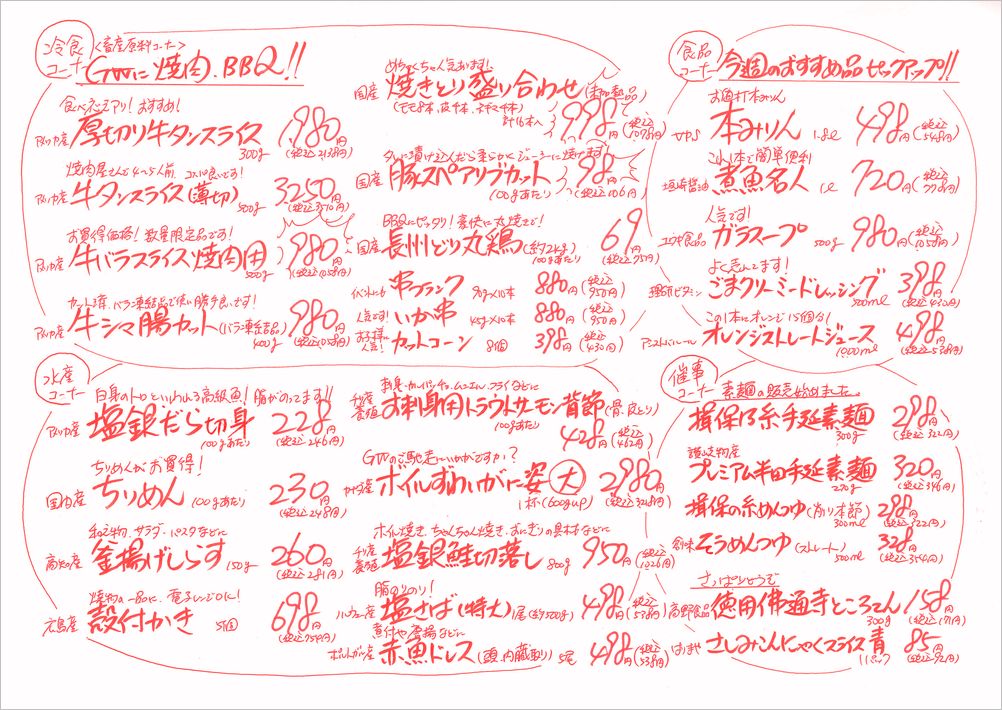 冷食コーナー
<畜産原料コーナー>
GWに焼肉、BBQ!!
食べごたえアリ!おすすめ!
アメリカ産 厚切り牛タンスライス 300g 1,980円(税込2138円)
焼肉屋さんで4〜5人前 コスパ良いです!
アメリカ産 牛タンスライス(薄切) 500g 3,250円(税込3510円)
お買得価格!数量限定品です!
アメリカ産 牛バラスライス焼肉用 500g 980円(税込1058円)
カット済、バラ凍結品で使い勝手良いです!
アメリカ産 牛シマ腸カット(バラ凍結品) 400g 980円(税込1058円)
めちゃくちゃ人気あります!
国産 焼きとり盛り合わせ(未加熱品)
計16本入 998円(税込1078円)
タレに漬け込んだら柔らかくジューシーに焼けます!
国産 豚スペアリブカット 100gあたり 98円(税込106円)
BBQにピッタリ!豪快に丸焼きで!
国産 長州どり丸鶏(約2kg) 100gあたり 69円(税込75円)
イベントにも 串フランク 90g×10本 880円(税込950円)
人気です! いか串 45g×10本 880円(税込950円)
お子様に人気! カットコーン 8個 398円(税込430円)
食品コーナー
今週のおすすめ品ピックアップ!!
お酒打本みりん
サプス 本みりん 1.8ℓ 498円(税込548円)
この1本で簡単便利
煮魚名人 1ℓ 720円(税込778円)
人気です!
ユウキ食品 ガラスープ 500g 980円(税込1058円)
よく売れてます!
理研ビタミン ごまクリーミードレッシング 500ml 398円(税込430円)
この1本にオレンジ15個分!
オレンジストレートジュース 1000ml 498円(税込538円)
水産コーナー
白身のトロといわれる高級魚!脂がのってます!!
アメリカ産 塩銀だら切身 100gあたり 228円(税込246円)
ちりめんがお買得!
国内産 ちりめん 100gあたり 230円(税込248円)
和え物、サラダ、パスタなどに
高知産 釜揚げしらす 150g 260円(税込281円)
焼物の一品に、電子レンジOKに!
広島産 殻付かき 5個 698円(税込754円)
刺身・カルパッチョ、ムニエル、フライなどに
チリ産養殖 お刺身用トラウトサーモン背節(骨、皮とり)
100gあたり 428円(税込462円)
GWのご馳走にいかがですか?
カナダ産 ボイルずわいがに姿 大 1杯(600gup) 2,980円(税込3218円)
ホイル焼き、ちゃんちゃん焼き、おにぎりの具材などに
チリ産養殖 塩銀鮭切落し 800g 950円(税込1026円)
脂のりのり!
ノルウェー産 塩さば(特大) 1尾(約500g) 498円(税込538円)
煮付や唐揚などに
ポルトガル産 赤魚ドレス(頭、内臓取り) 5尾 498円(税込538円)
催事コーナー
素麺の販売始めました。
揖保乃糸手延素麺 300g 298円(税込322円)
讃岐物産
プレミアム半田手延素麺 270g 320円(税込346円)
揖保の糸めんつゆ(削り本節) 300ml 298円(税込322円)
創味 そうめんつゆ(ストレート) 500ml 328円(税込354円)
さっぱりしょうゆで
高野食品 徳用佛通寺ところてん 300g 158円(税込171円)
はりまや さしみこんにゃくスライス青 1パック 85円(税込92円)